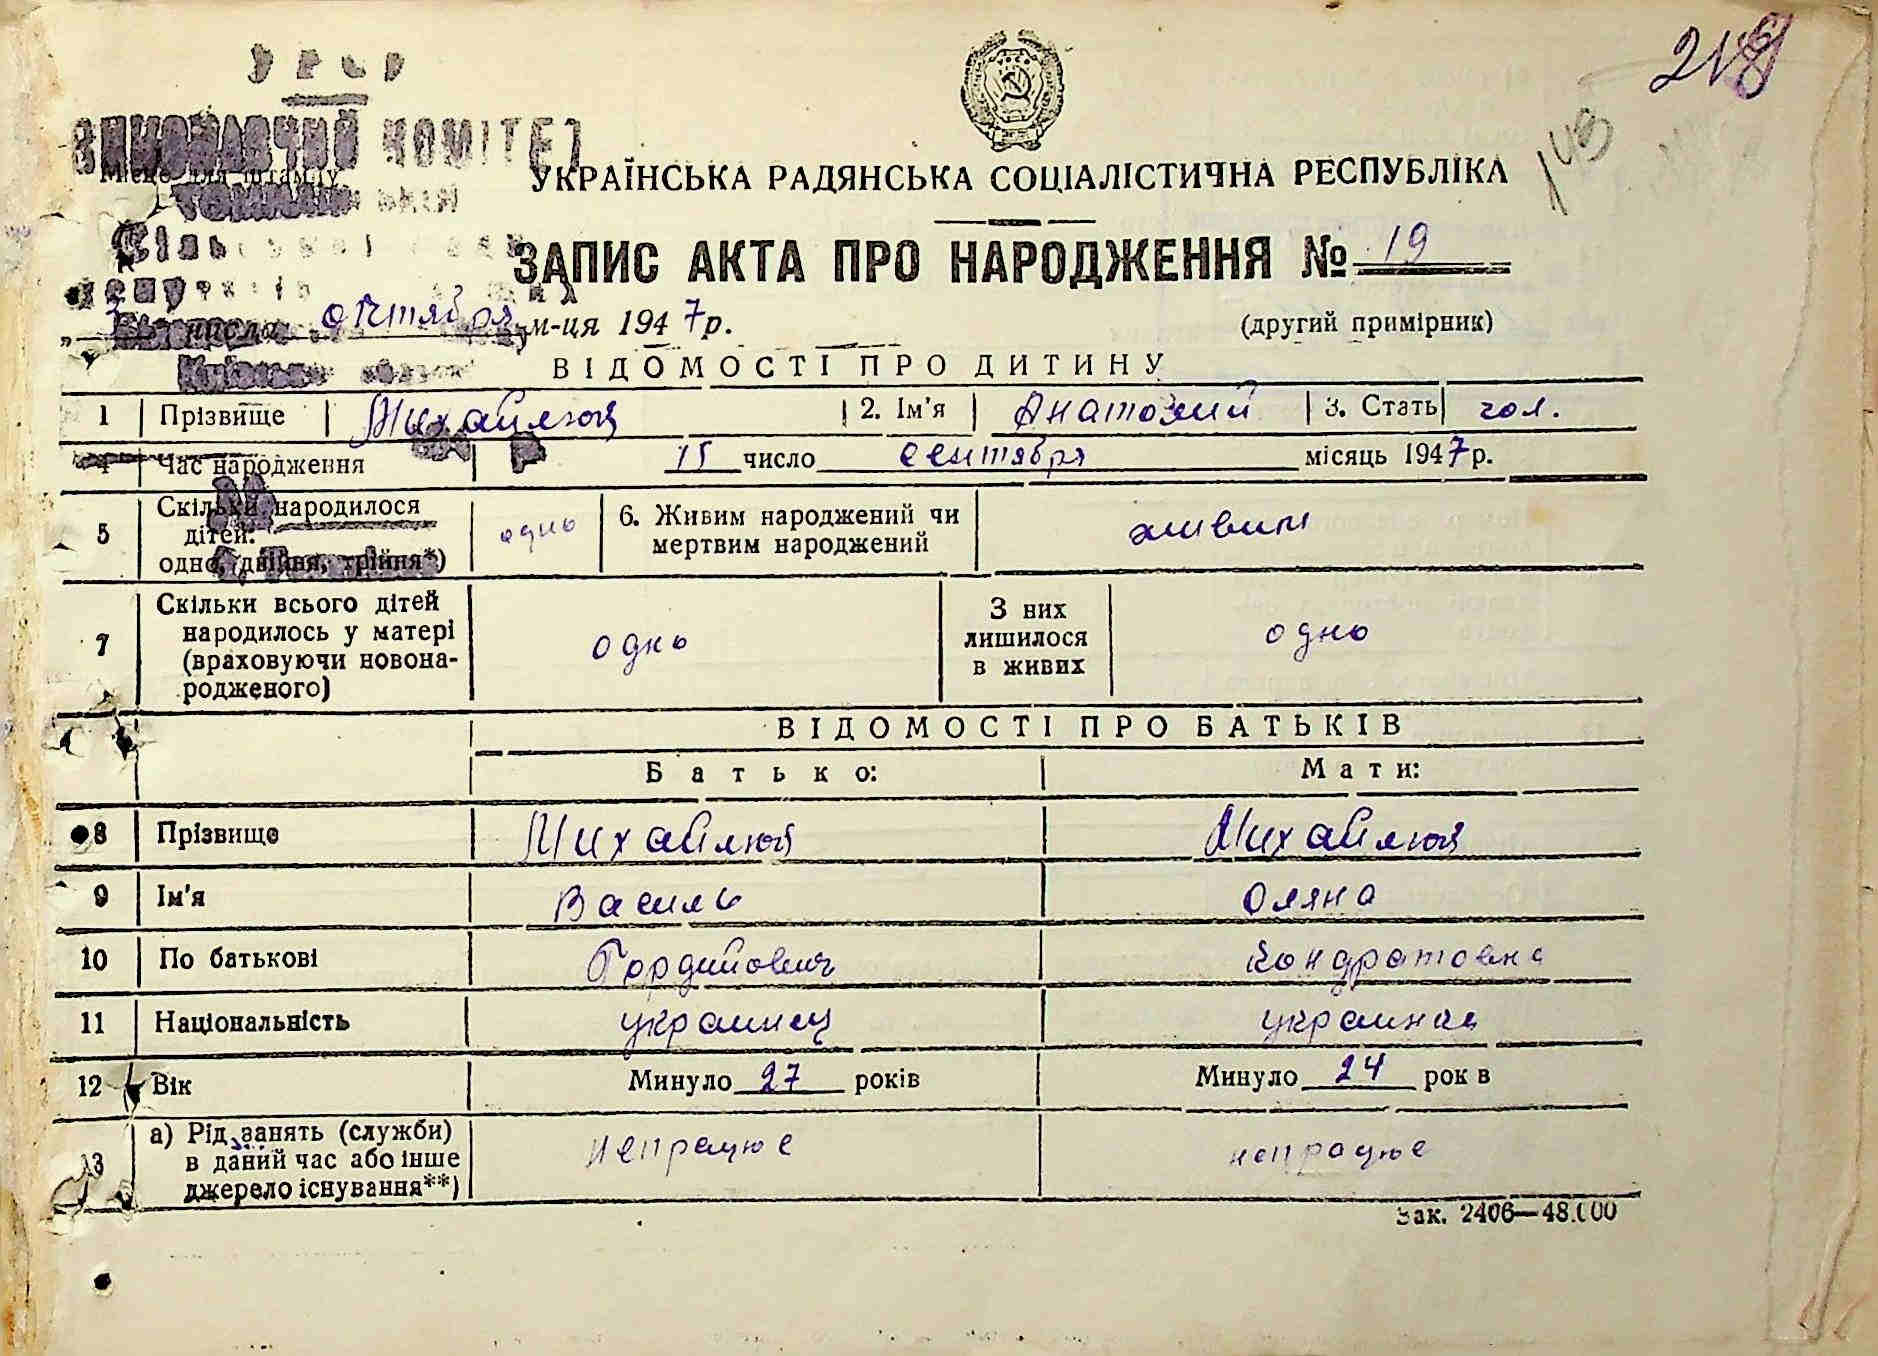 УРСР
218
ВИКОНАВЧИЙ КОМІТЕТ
143
Місце для штампу
УКРАЇНСЬКА РАДЯНСЬКА СОЦІАЛІСТИЧНА РЕСПУБЛІКА
ЗАПИС АКТА ПРО НАРОДЖЕННЯ № 19
„3 числа октября м-ця 1947р.
(другий примірник)
ВІДОМОСТІ ПРО ДИТИНУ
1 Прізвище Михайлюк 2. Ім'я Анатолий 3. Стать чол.
4 Час народження 15 число сентября місяць 1947р.
5 Скільки народилося дітей: одно, (двійня, трійня*) одно 6. Живим народжений чи мертвим народжений живим
7 Скільки всього дітей народилось у матері (враховуючи новона-родженого) одно З них лишилося в живих одно
ВІДОМОСТІ ПРО БАТЬКІВ
Батько: Мати:
8 Прізвище Михайлюк Михайлюк
9 Ім'я Василь Оляна
10 По батькові Гордийович Кондратовна
11 Національність украинец украинка
12 Вік Минуло 27 років Минуло 24 рок в
13 а) Рід занять (служби) в даний час або інше джерело існування**) непрацює непрацює
Зак. 2406—48.000